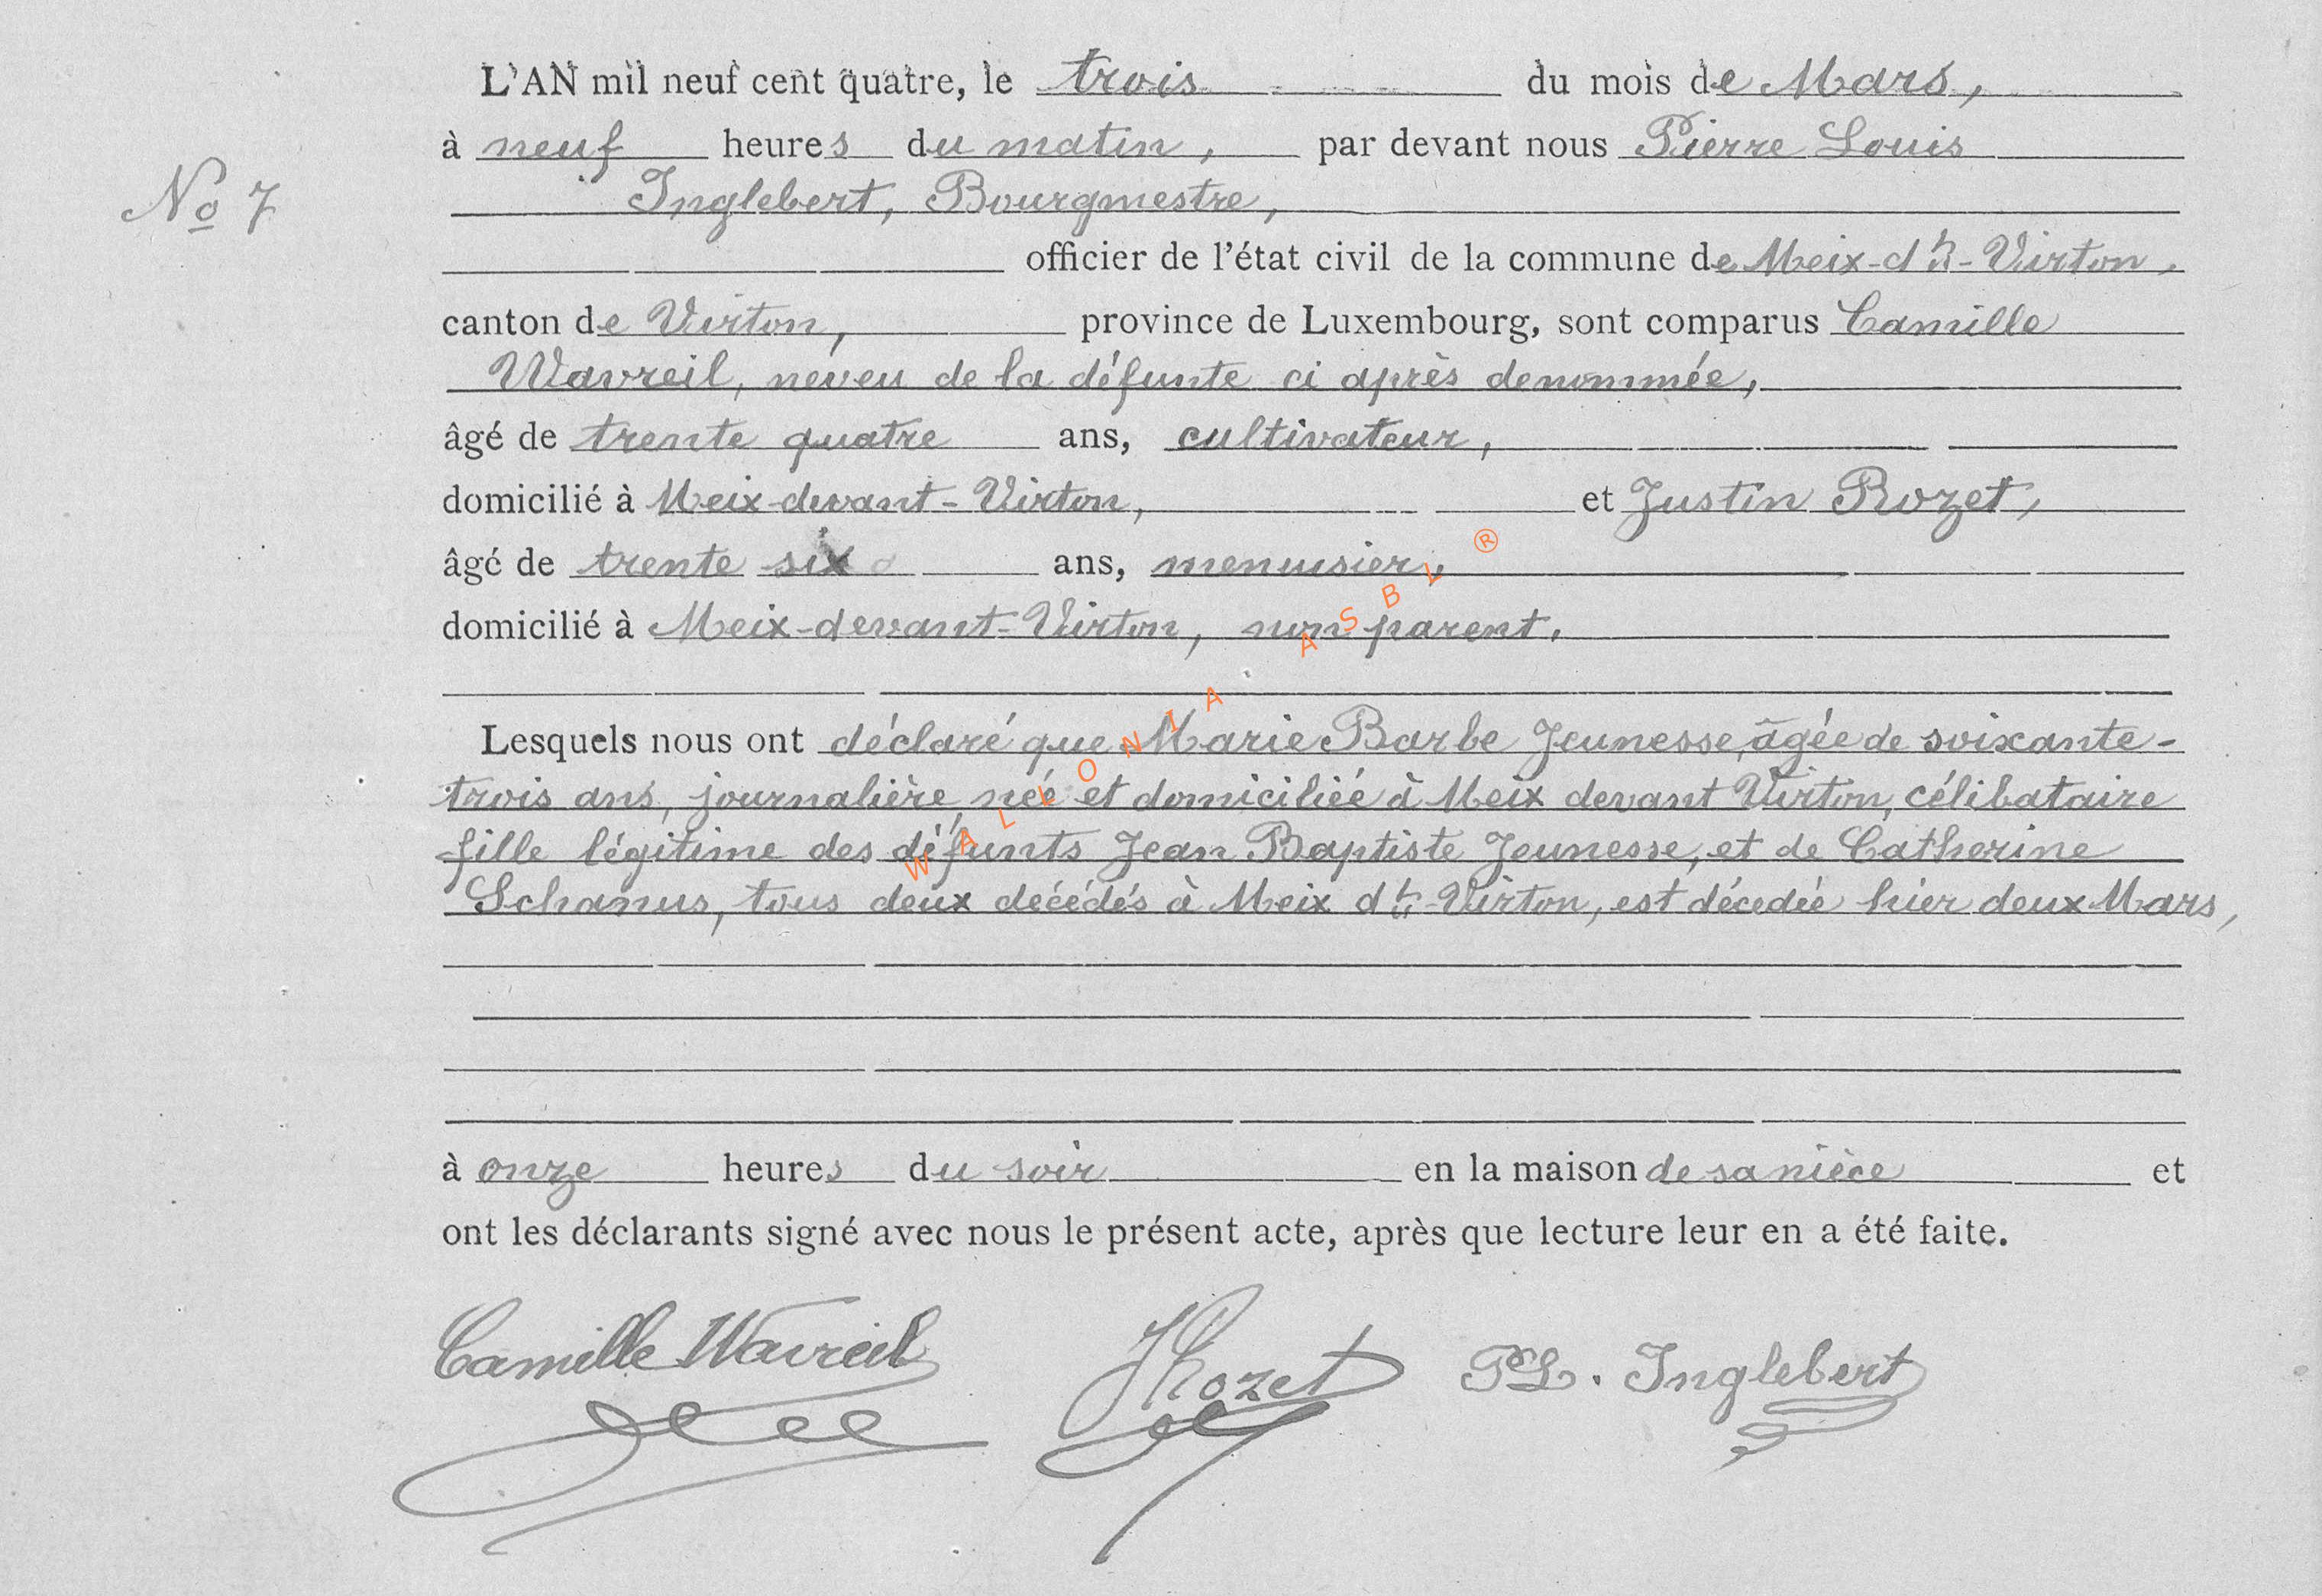 L'AN mil neuf cent quatre, le trois du mois de Mars,
à neuf heures du matin, par devant nous Pierre Louis
No 7
Inglebert, Bourgmestre,
officier de l'état civil de la commune de Meix-dt-Virton,
canton de Virton, province de Luxembourg, sont comparus Camille
Wavreil, neveu de la défunte ci après denommée,
âgé de trente quatre ans, cultivateur,
domicilié à Meix-devant-Virton, et Justin Rozet,
âgé de trente six ans, menuisier,
domicilié à Meix-devant-Virton, non parent.
Lesquels nous ont déclaré que Marie Barbe Jeunesse, âgée de soixante-
trois ans, journalière, née et domiciliée à Meix devant Virton, célibataire
fille légitime des défunts Jean Baptiste Jeunesse, et de Catherine
Schanus, tous deux décédés à Meix dt-Virton, est décedée hier deux Mars,
à onze heures du soir en la maison de sa nièce et
ont les déclarants signé avec nous le présent acte, après que lecture leur en a été faite.
Camille Wavreil JRozet PL. Inglebert
WALLONIA ASBL ®